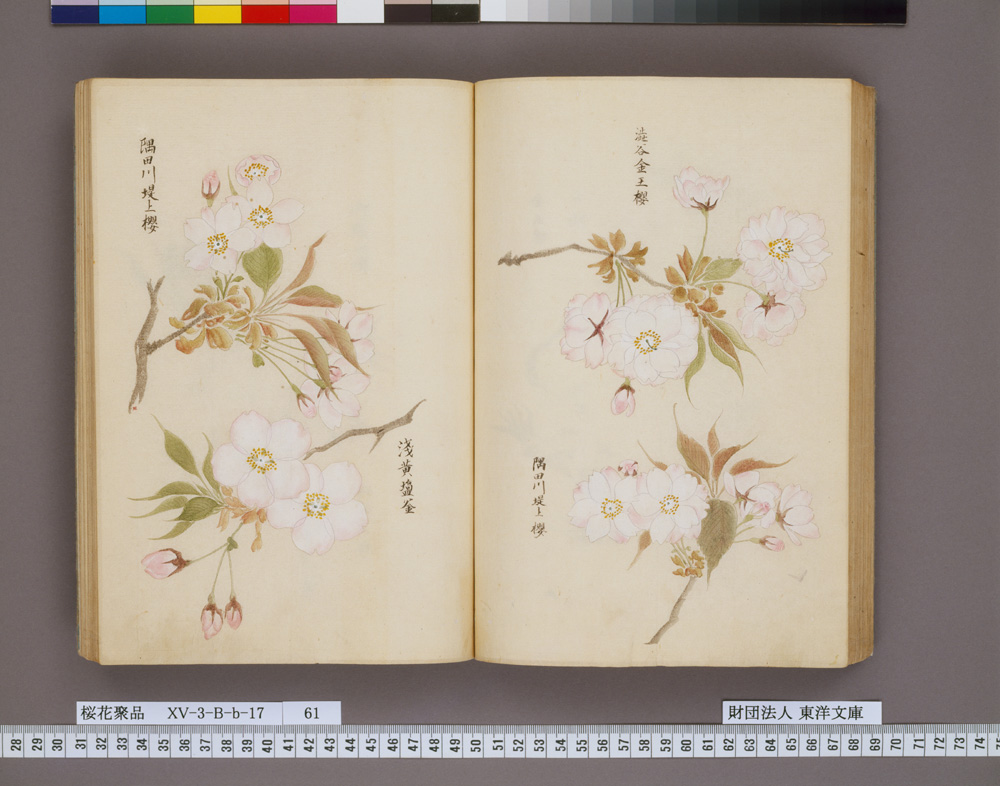 澁谷金王櫻
隅田川堤上櫻
隅田川堤上櫻
淺黄塩釜
桜花聚品 XV-3-B-b-17 61
財団法人 東洋文庫
28 29 30 31 32 33 34 35 36 37 38 39 40 41 42 43 44 45 46 47 48 49 50 51 52 53 54 55 56 57 58 59 60 61 62 63 64 65 66 67 68 69 70 71 72 73 74 75